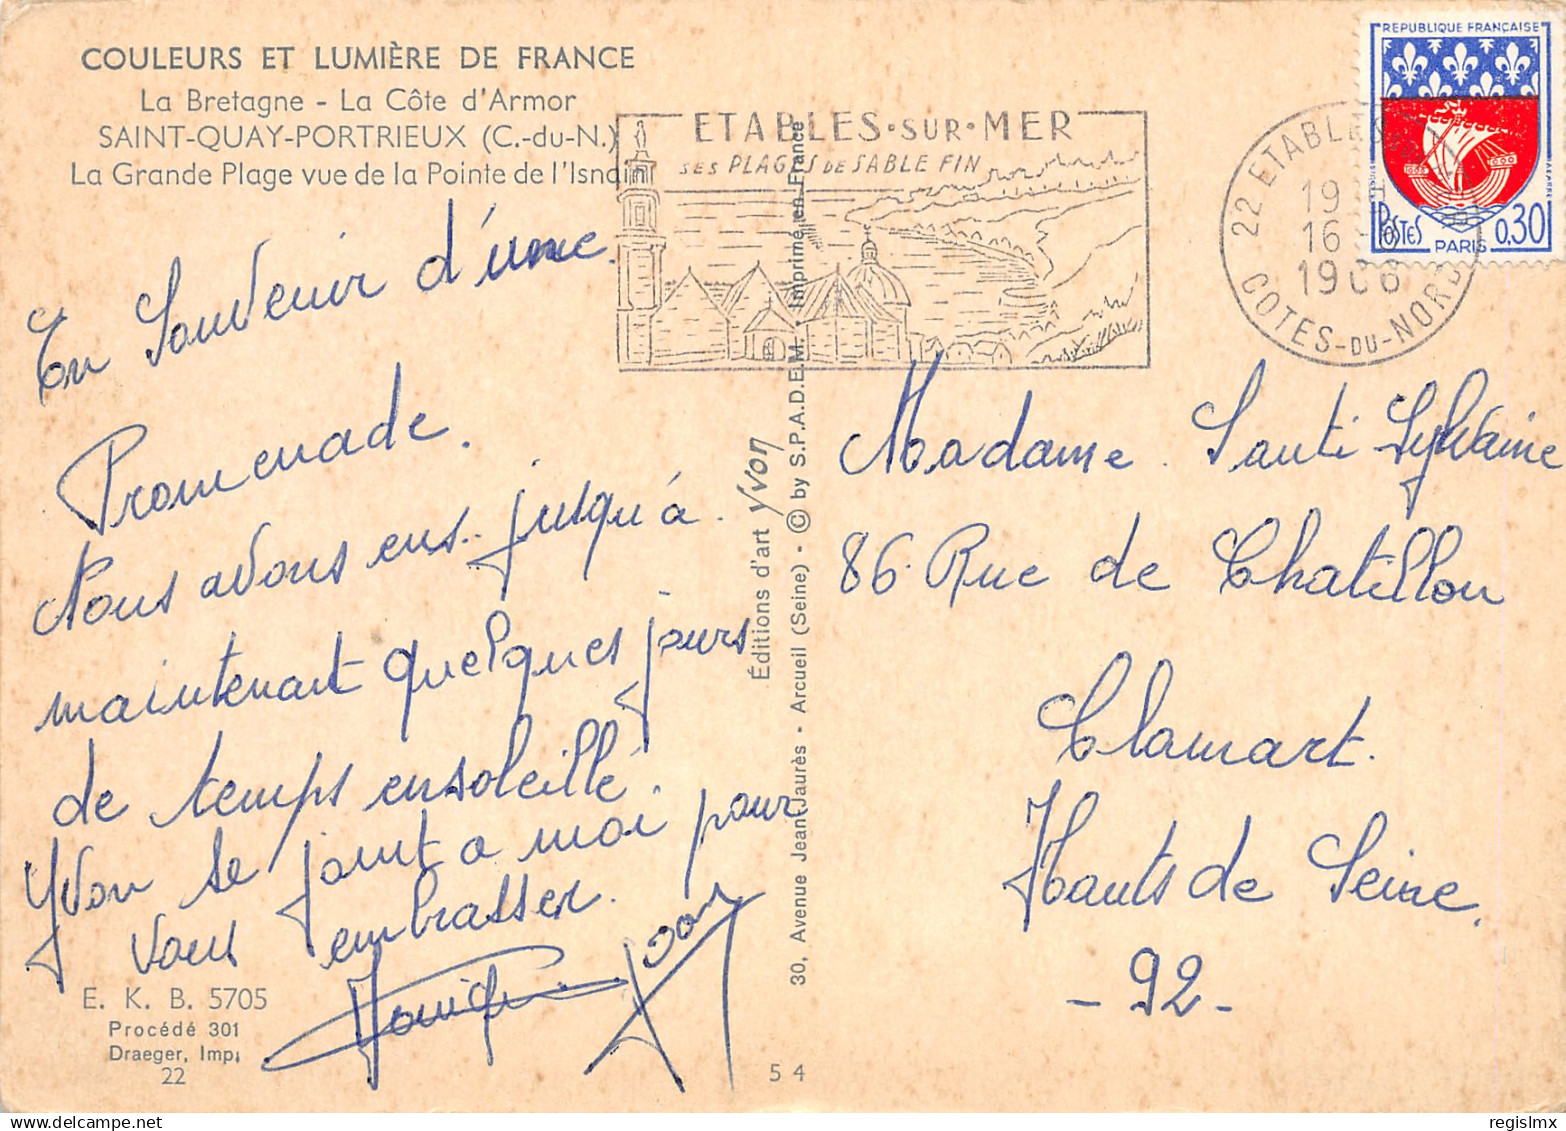 COULEURS ET LUMIÈRE DE FRANCE
La Bretagne - La Côte d'Armor
SAINT-QUAY-PORTRIEUX (C.-du-N.)
La Grande Plage vue de la Pointe de l'Isnain
En Souvenir d'une
Promenade.
Nous avons eus jusqu'à
maintenant quelques jours
de temps ensoleillé.
Yvon se joint a moi pour
vous embrasser.
E. K. B. 5705
Procédé 301
Draeger, Imp.
22
ETABLES-SUR-MER
SES PLAGES DE SABLE FIN
22 ETABLES
19 H
16
1966
COTES-DU-NORD
REPUBLIQUE FRANÇAISE
POSTES
PARIS
0,30
Éditions d'art Yvon
30, Avenue Jean Jaurès - Arcueil (Seine) - © by S.P.A.D.E.M. - Imprimé en France
54
Madame Santi Sylvaine
86 Rue de Chatillon
Clamart.
Hauts de Seine.
- 92 -
regislmx